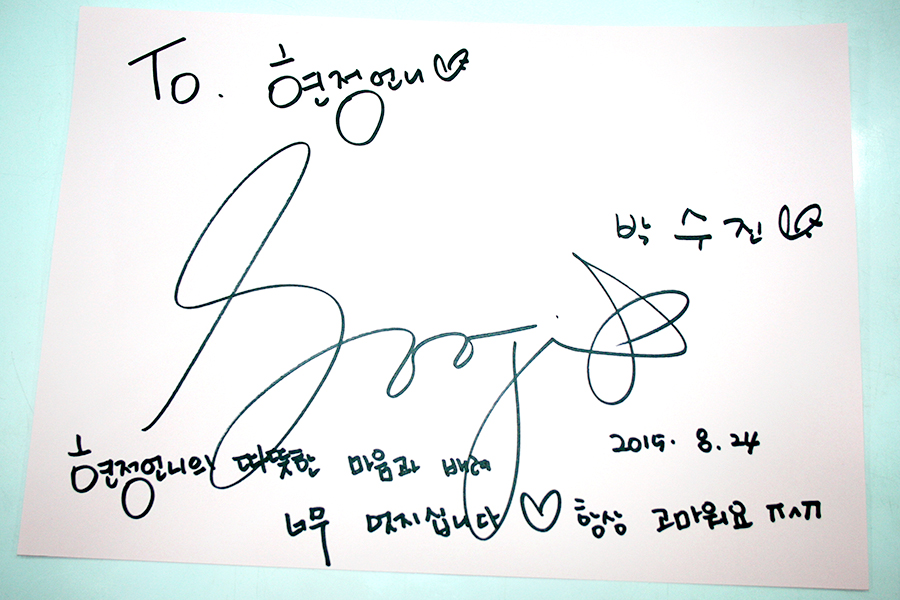 To. 현정언니♡
박 수 진♡
Soojin
2015. 8. 24
현정언니의 따뜻한 마음과 배려
너무 멋지십니다♡ 항상 고마워요 ㅠㅅㅠ